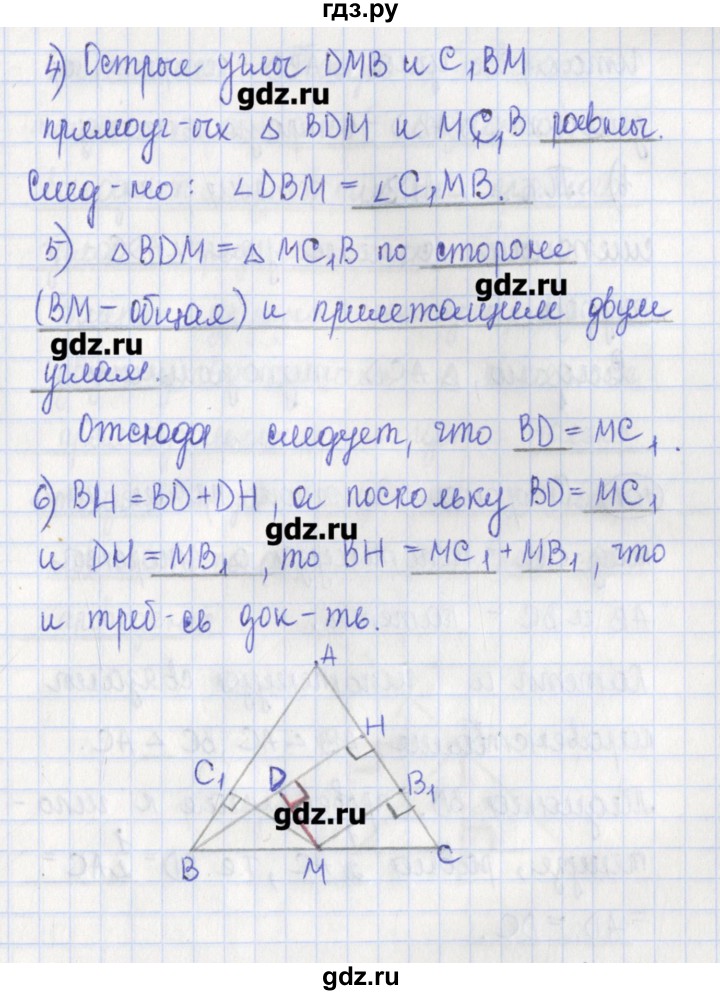 гдз.ру
4) Острые углы DMB и C₁BM
gdz.ru
прямоуг-ых △ BDM и MC₁B равны.
След-но: ∠DBM = ∠C₁MB.
5) △ BDM = △ MC₁B по стороне
gdz.ru
(BM – общая) и прилежащим двум
gdz.ru
углам.
Отсюда следует, что BD = MC₁.
6) BH = BD + DH, а поскольку BD = MC₁
gdz.ru
и DH = MB₁, то BH = MC₁ + MB₁, что
и треб-сь док-ть.
A
H
C₁ D B₁
gdz.ru
B M C
gdz.ru